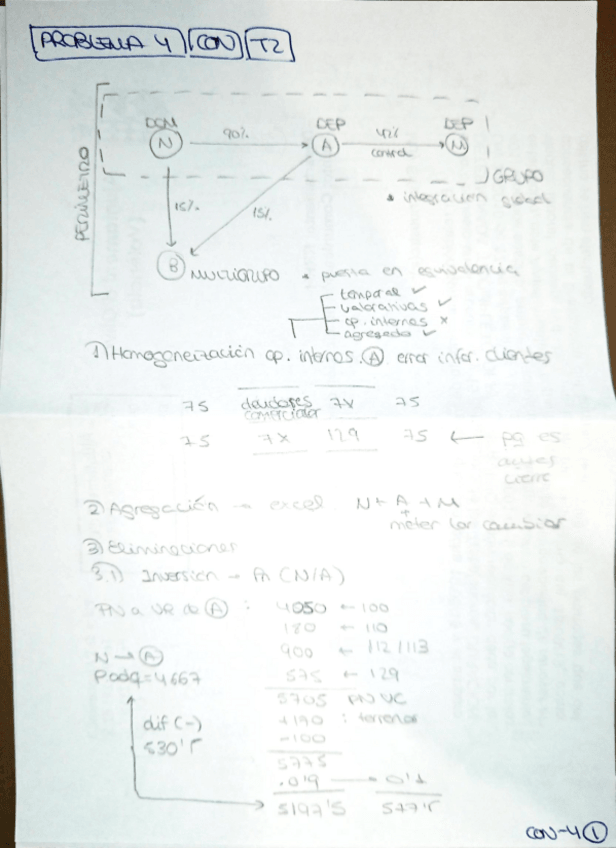 PROBLEMA 4 CON T2
DOM DEP DEP
N 90% A 42% M
control
PERÍMETRO
GRUPO
* integración global
15% 15%
B MULTIGRUPO * puesta en equivalencia
temporal ✓
valorativas ✓
op. internas x
agregada ✓
1) Homogeneización op. internas. A error infor. clientes
75 deudores comerciales 7x 75
75 7x 129 75 ← pg es
antes
cierre
2) Agregación → excel N + A + M
+
meter los cambios
3) Eliminaciones
3.1) Inversión → FA (N/A)
PN a VR de A : 4050 ← 100
180 ← 110
900 ← 112/113
N → A 575 ← 129
Padq = 4667
5705 PN VC
+190 : terrenos
dif (-) -100
530'5
5775
·0'9 → 0'1
5197'5 577'5
CON-4 1